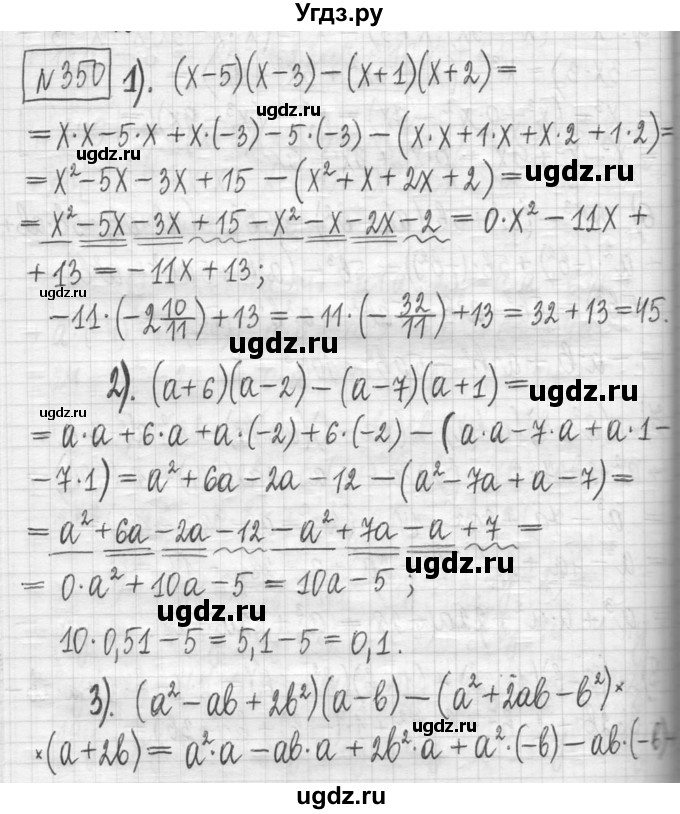 Угдз.ру
№350 1). (x-5)(x-3)-(x+1)(x+2)=
ugdz.ru
=x·x-5·x+x·(-3)-5·(-3)-(x·x+1·x+x·2+1·2)=
ugdz.ru
=x²-5x-3x+15-(x²+x+2x+2)=
ugdz.ru
=x²-5x-3x+15-x²-x-2x-2=0·x²-11x+
ugdz.ru
+13=-11x+13;
ugdz.ru
-11·(-2 10/11)+13=-11·(-32/11)+13=32+13=45.
ugdz.ru
2). (a+6)(a-2)-(a-7)(a+1)=
ugdz.ru
ugdz.ru
=a·a+6·a+a·(-2)+6·(-2)-(a·a-7·a+a·1-
-7·1)=a²+6a-2a-12-(a²-7a+a-7)=
ugdz.ru
=a²+6a-2a-12-a²+7a-a+7=
=0·a²+10a-5=10a-5;
ugdz.ru
ugdz.ru
10·0,51-5=5,1-5=0,1.
3). (a²-ab+2b²)(a-b)-(a²+2ab-b²)×
ugdz.ru
×(a+2b)=a²·a-ab·a+2b²·a+a²·(-b)-ab·(-b)-
ugdz.ru